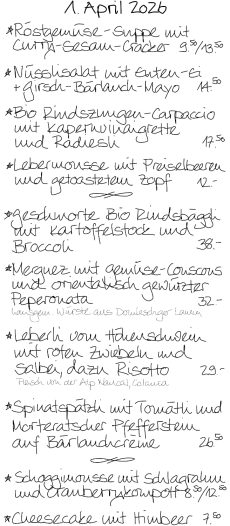 1. April 2026
*Röstgemüse-Suppe mit
Curry-Sesam-Cracker 9.50/13.50
*Nüsslisalat mit Enten-Ei
+ Girsch-Bärlauch-Mayo 14.50
*Bio Rindszungen-Carpaccio
mit Kapernvinaigrette
und Radiesli 17.50
*Lebermousse mit Preiselbeeren
und getoastetem Zopf 12.-
*geschmorte Bio Rindsbäggli
mit Kartoffelstock und
Broccoli 38.-
*Merguez mit Gemüse-Couscous
und orientalisch gewürzter
Peperonata 32.-
hausgem. Würste aus Domleschger Lamm
*Leberli vom Höhenschwein
mit roten Zwiebeln und
Salbei, dazu Risotto 29.-
Fleisch von der Alp Nancal, Calanca
*Spinatspätzli mit Tomätli und
Morteratscher Pfefferstein
auf Bärlauchcrème 26.50
*Schoggimousse mit Schlagrahm
und Cranberrykompott 8.50/12.50
*Cheesecake mit Himbeer 7.50